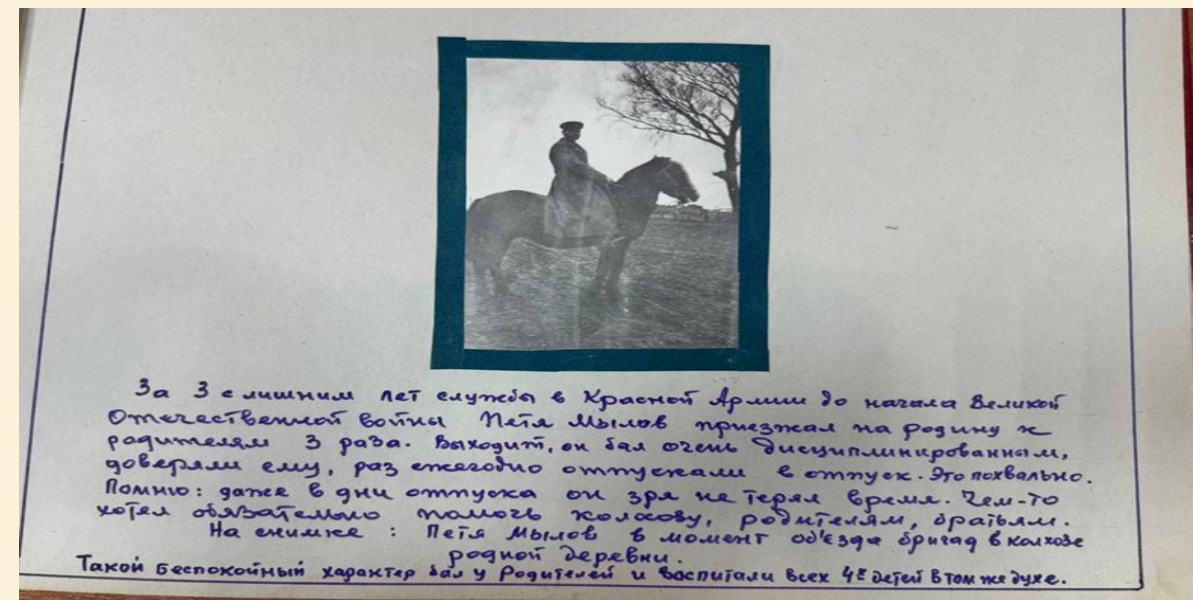 За 3 с лишним лет службы в Красной Армии до начала Великой
Отечественной войны Петя Мылов приезжал на родину к
родителям 3 раза. Выходит, он бал очень дисциплинированным,
доверяли ему, раз ежегодно отпускали в отпуск. Это похвально.
Помню: даже в дни отпуска он зря не терял время. Чем-то
хотел обязательно помочь колхозу, родителям, братьям.
На снимке : Петя Мылов в момент об'езда бригад в колхозе
родной деревни.
Такой беспокойный характер бал у Родителей и воспитали всех 4х детей в том же духе.